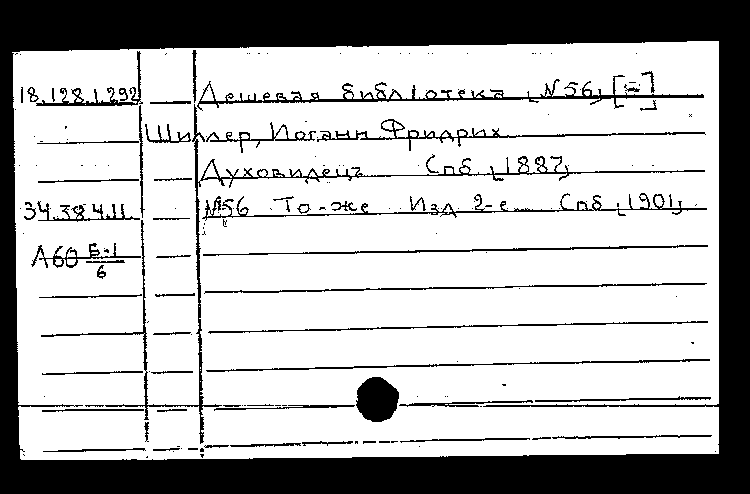 18.128.1.292 Дешевая библiотека [N56] [=]
Шиллер, Иоганн Фридрих
Духовидецъ Спб [1887]
34.38.4.11 №56 То-же Изд 2-е Спб [1901]
А60 Б-1/6